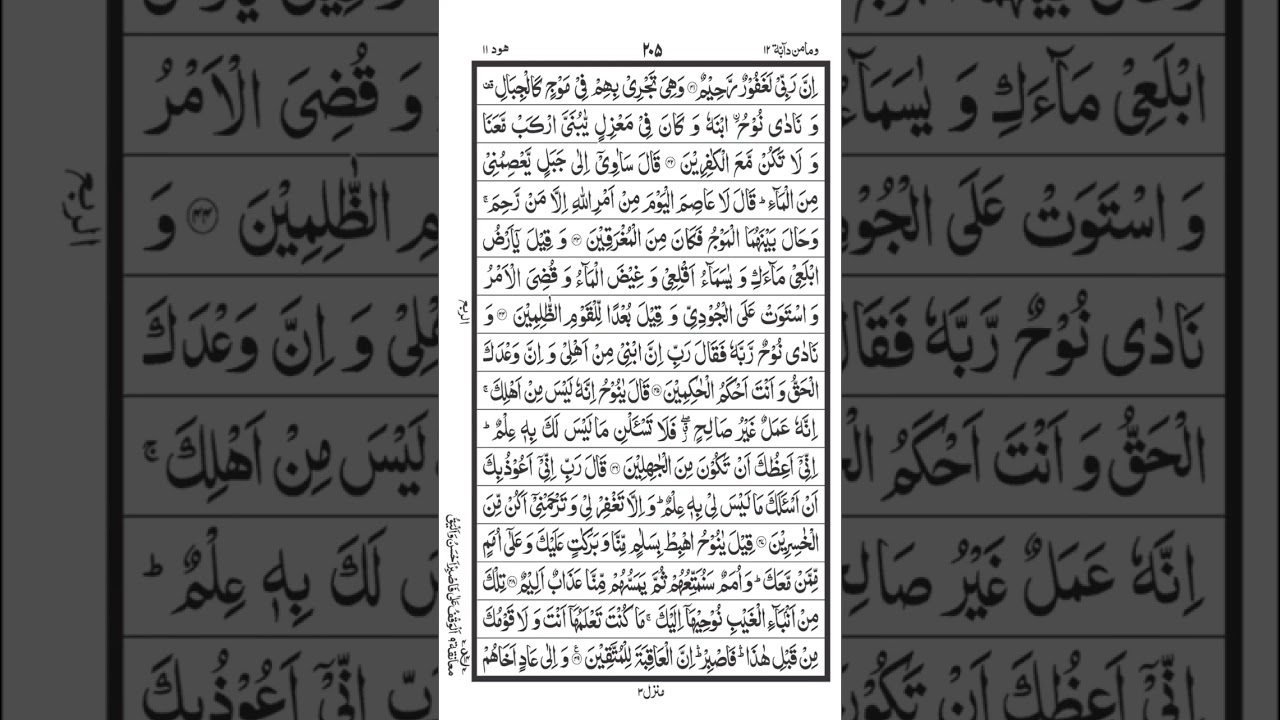 وما من دآبة ١٢
٢٠٥
هود ١١
اِنَّ رَبِّیْ لَغَفُوْرٌ رَّحِیْمٌ ﴿۴۱﴾ وَهِیَ تَجْرِیْ بِهِمْ فِیْ مَوْجٍ كَالْجِبَالِ
وَ نَادٰی نُوْحُ ۨ ابْنَهٗ وَ كَانَ فِیْ مَعْزِلٍ یّٰبُنَیَّ ارْكَبْ مَّعَنَا
وَ لَا تَكُنْ مَّعَ الْكٰفِرِیْنَ ﴿۴۲﴾ قَالَ سَاٰوِیْۤ اِلٰی جَبَلٍ یَّعْصِمُنِیْ
مِنَ الْمَآءِ ؕ قَالَ لَا عَاصِمَ الْیَوْمَ مِنْ اَمْرِ اللّٰهِ اِلَّا مَنْ رَّحِمَ ۚ
وَحَالَ بَیْنَهُمَا الْمَوْجُ فَكَانَ مِنَ الْمُغْرَقِیْنَ ﴿۴۳﴾ وَ قِیْلَ یٰۤاَرْضُ
ابْلَعِیْ مَآءَكِ وَ یٰسَمَآءُ اَقْلِعِیْ وَ غِیْضَ الْمَآءُ وَ قُضِیَ الْاَمْرُ
وَ اسْتَوَتْ عَلَی الْجُوْدِیِّ وَ قِیْلَ بُعْدًا لِّلْقَوْمِ الظّٰلِمِیْنَ ﴿۴۴﴾ وَ
نَادٰی نُوْحٌ رَّبَّهٗ فَقَالَ رَبِّ اِنَّ ابْنِیْ مِنْ اَهْلِیْ وَ اِنَّ وَعْدَكَ
الْحَقُّ وَ اَنْتَ اَحْكَمُ الْحٰكِمِیْنَ ﴿۴۵﴾ قَالَ یٰنُوْحُ اِنَّهٗ لَیْسَ مِنْ اَهْلِكَ ۚ
اِنَّهٗ عَمَلٌ غَیْرُ صَالِحٍ فَلَا تَسْـَٔلْنِ مَا لَیْسَ لَكَ بِهٖ عِلْمٌ ؕ
اِنِّیْۤ اَعِظُكَ اَنْ تَكُوْنَ مِنَ الْجٰهِلِیْنَ ﴿۴۶﴾ قَالَ رَبِّ اِنِّیْۤ اَعُوْذُ بِكَ
اَنْ اَسْـَٔلَكَ مَا لَیْسَ لِیْ بِهٖ عِلْمٌ ؕ وَ اِلَّا تَغْفِرْ لِیْ وَ تَرْحَمْنِیْۤ اَكُنْ مِّنَ
الْخٰسِرِیْنَ ﴿۴۷﴾ قِیْلَ یٰنُوْحُ اهْبِطْ بِسَلٰمٍ مِّنَّا وَ بَرَكٰتٍ عَلَیْكَ وَ عَلٰۤی اُمَمٍ
مِّمَّنْ مَّعَكَ ؕ وَ اُمَمٌ سَنُمَتِّعُهُمْ ثُمَّ یَمَسُّهُمْ مِّنَّا عَذَابٌ اَلِیْمٌ ﴿۴۸﴾ تِلْكَ
مِنْ اَنْۢبَآءِ الْغَیْبِ نُوْحِیْهَاۤ اِلَیْكَ ۚ مَا كُنْتَ تَعْلَمُهَاۤ اَنْتَ وَ لَا قَوْمُكَ
مِنْ قَبْلِ هٰذَا ؕۛ فَاصْبِرْ ؕۛ اِنَّ الْعَاقِبَةَ لِلْمُتَّقِیْنَ ﴿۴۹﴾ وَ اِلٰی عَادٍ اَخَاهُمْ
الربع
منزل ٣